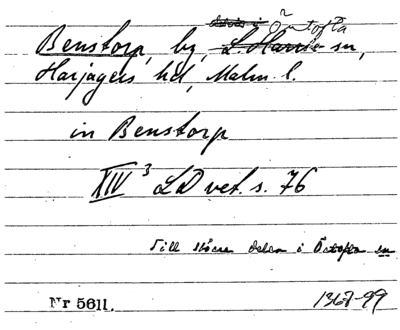 Örtofta
Benstorp, by, L Harrie sn,
Harjagers hd, Malm. l.
in Benstorp
XIV 3 LD vet. s. 76
Till större delen i Örtofta sn
Nr 5611.
1367-99